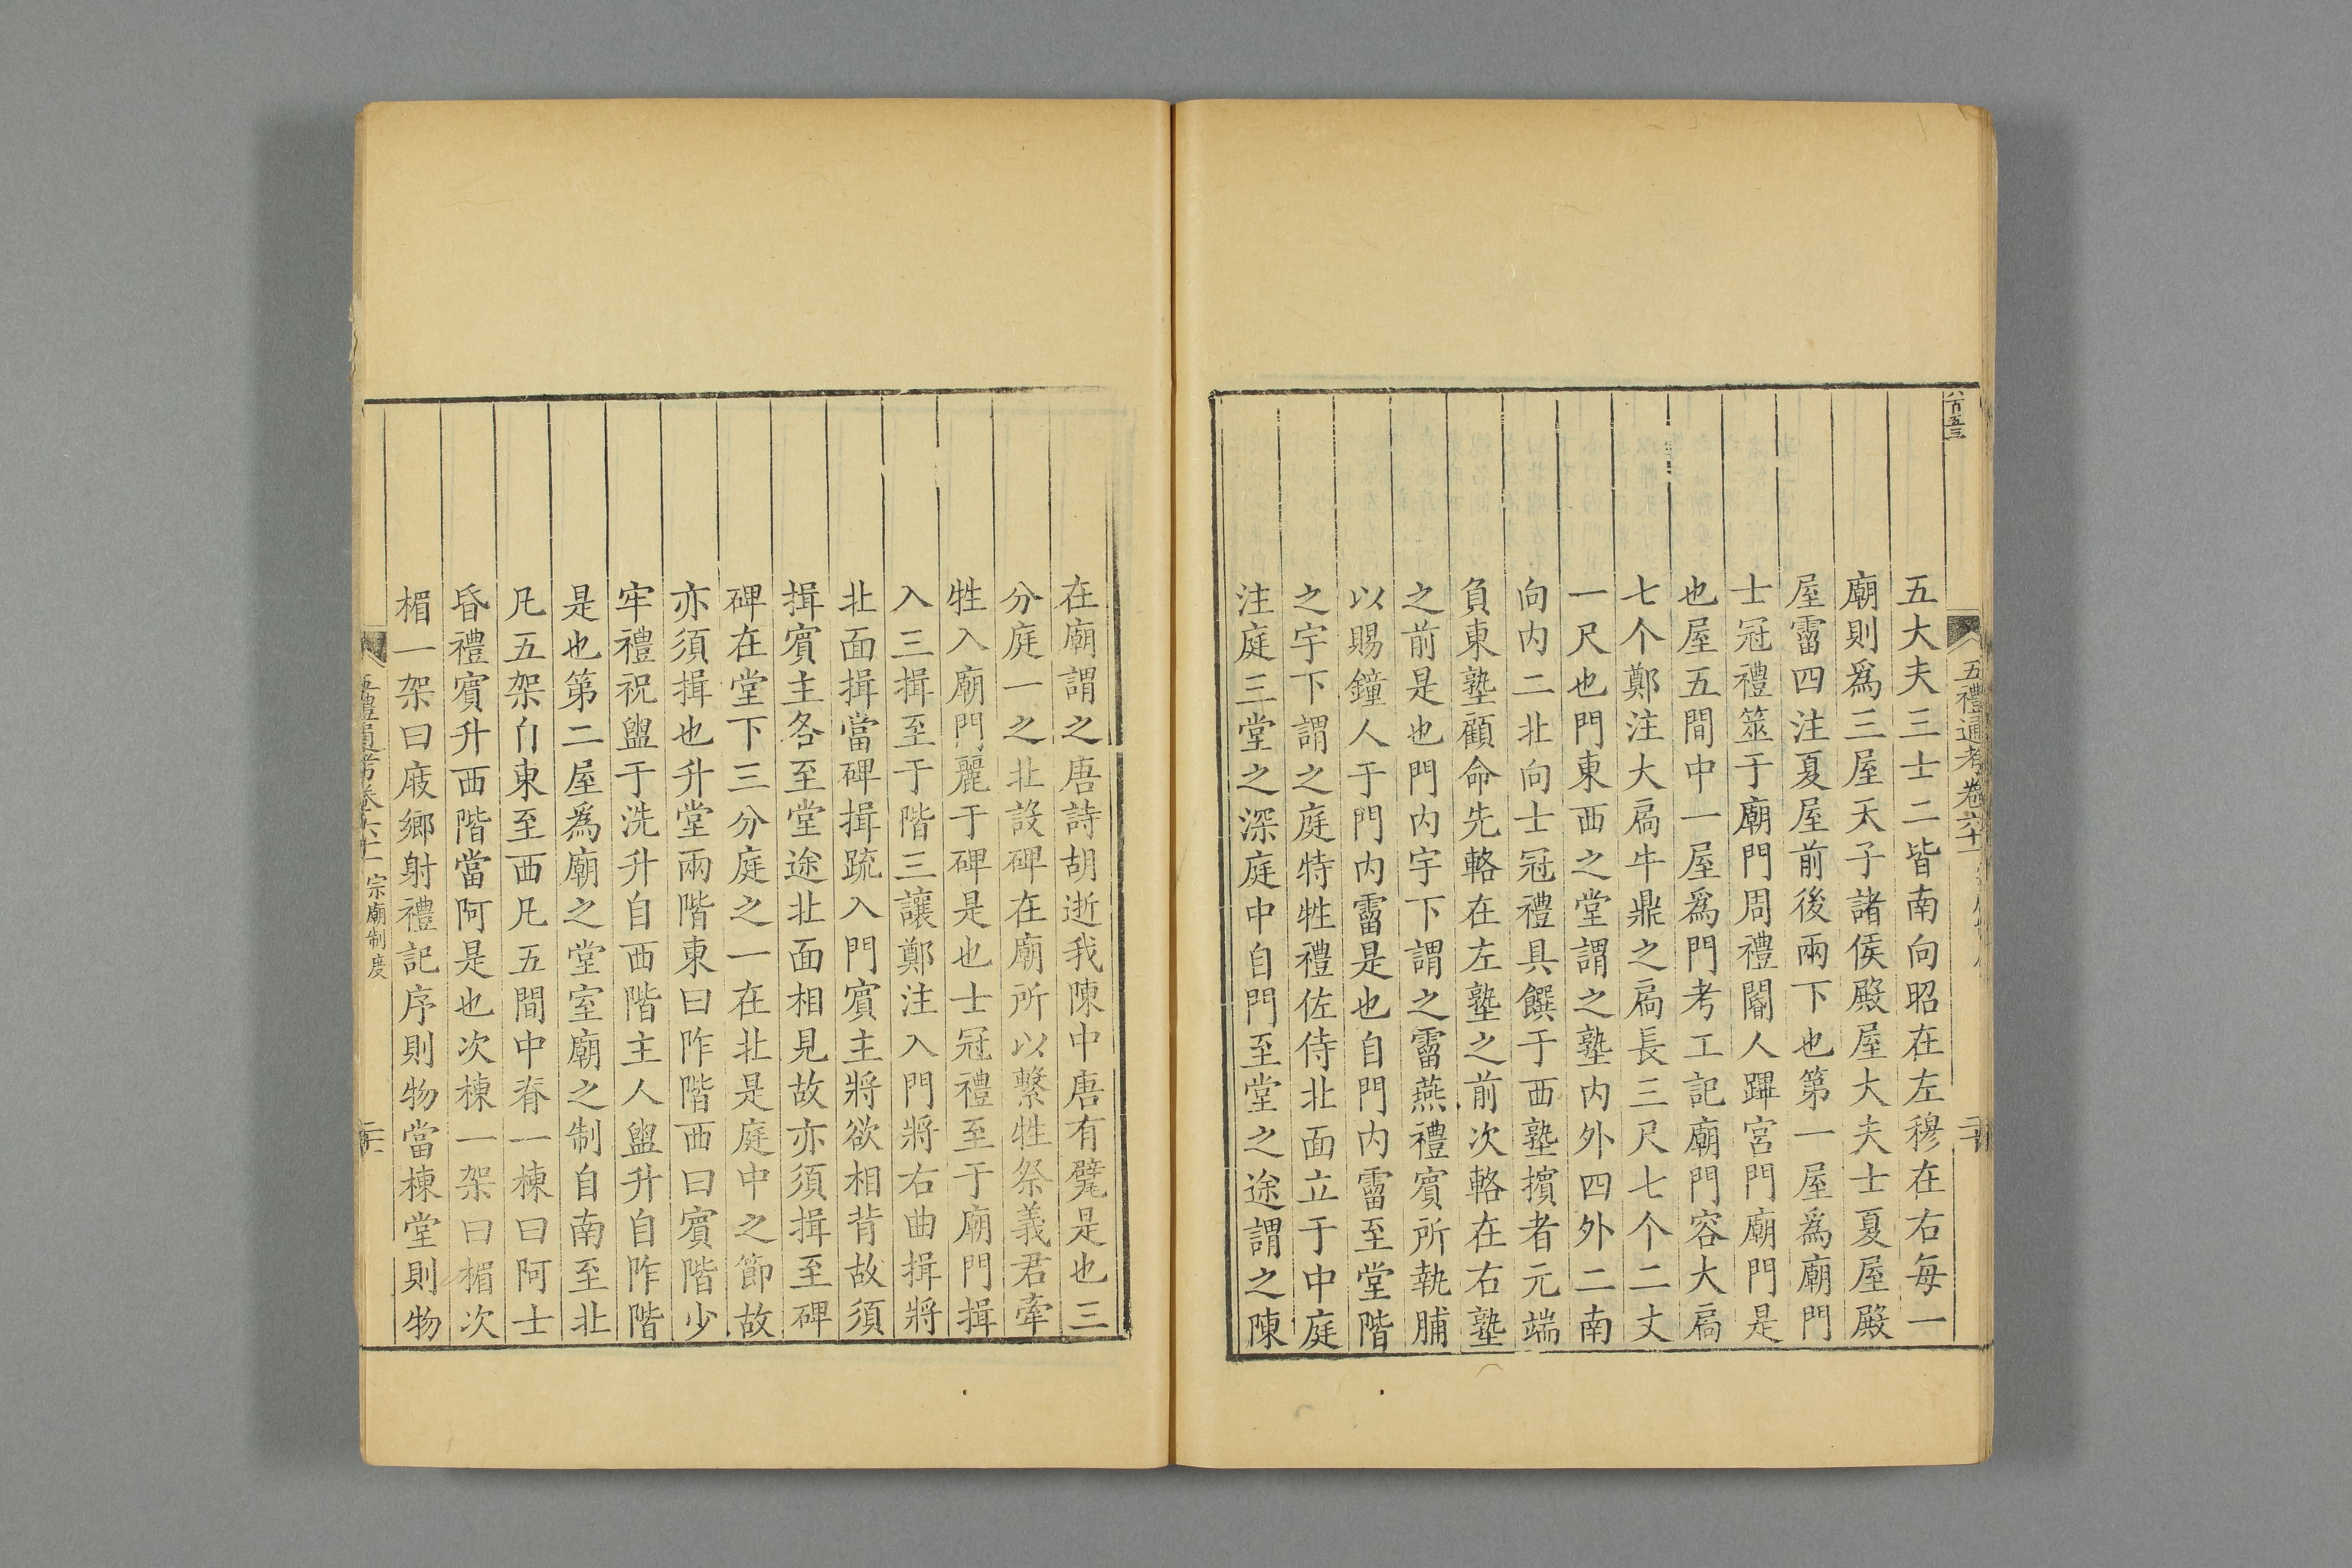 八百五三
五禮通考卷六十一
五大夫三士二皆南向昭在左穆在右每一
廟則爲三屋天子諸侯殿屋大夫士夏屋殿
屋霤四注夏屋前後兩下也第一屋爲廟門
士冠禮筮于廟門周禮閽人蹕宮門廟門是
也屋五間中一屋爲門考工記廟門容大扃
七个鄭注大扃牛鼎之扃長三尺七个二丈
一尺也門東西之堂謂之塾内外四外二南
向内二北向士冠禮具饌于西塾擯者元端
負東塾顧命先輅在左塾之前次輅在右塾
之前是也門内宇下謂之霤燕禮賓所執脯
以賜鐘人于門内霤是也自門内霤至堂階
之宇下謂之庭特牲禮佐侍北面立于中庭
注庭三堂之深庭中自門至堂之途謂之陳
在廟謂之唐詩胡逝我陳中唐有甓是也三
分庭一之北設碑在廟所以繫牲祭義君牽
牲入廟門麗于碑是也士冠禮至于廟門揖
入三揖至于階三讓鄭注入門將右曲揖將
北面揖當碑揖疏入門賓主將欲相背故須
揖賓主各至堂途北面相見故亦須揖至碑
碑在堂下三分庭之一在北是庭中之節故
亦須揖也升堂兩階東曰阼階西曰賓階少
牢禮祝盥于洗升自西階主人盥升自阼階
是也第二屋爲廟之堂室廟之制自南至北
凡五架自東至西凡五間中脊一棟曰阿士
昏禮賓升西階當阿是也次棟一架曰楣次
楣一架曰庪鄉射禮記序則物當棟堂則物
五禮通考卷六十一 宗廟制度